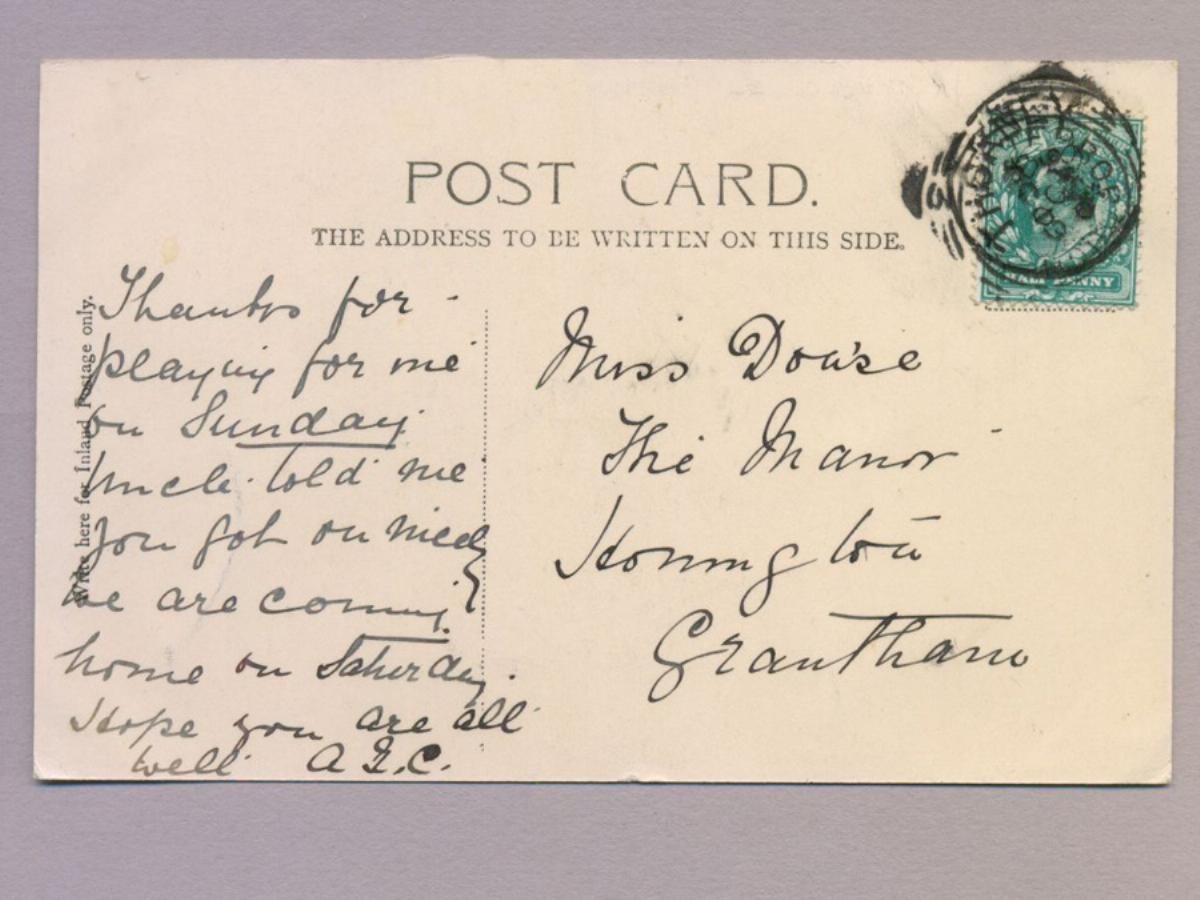 POST CARD.
THE ADDRESS TO BE WRITTEN ON THIS SIDE.
Write here for Inland Postage only.
Thanks for
playing for me
on Sunday
Uncle told me
you got on nicely
We are coming
home on Saturday.
Hope you are all
well A.E.C.
Miss Dowse
The Manor
Honington
Grantham
THORNEY
HALF PENNY